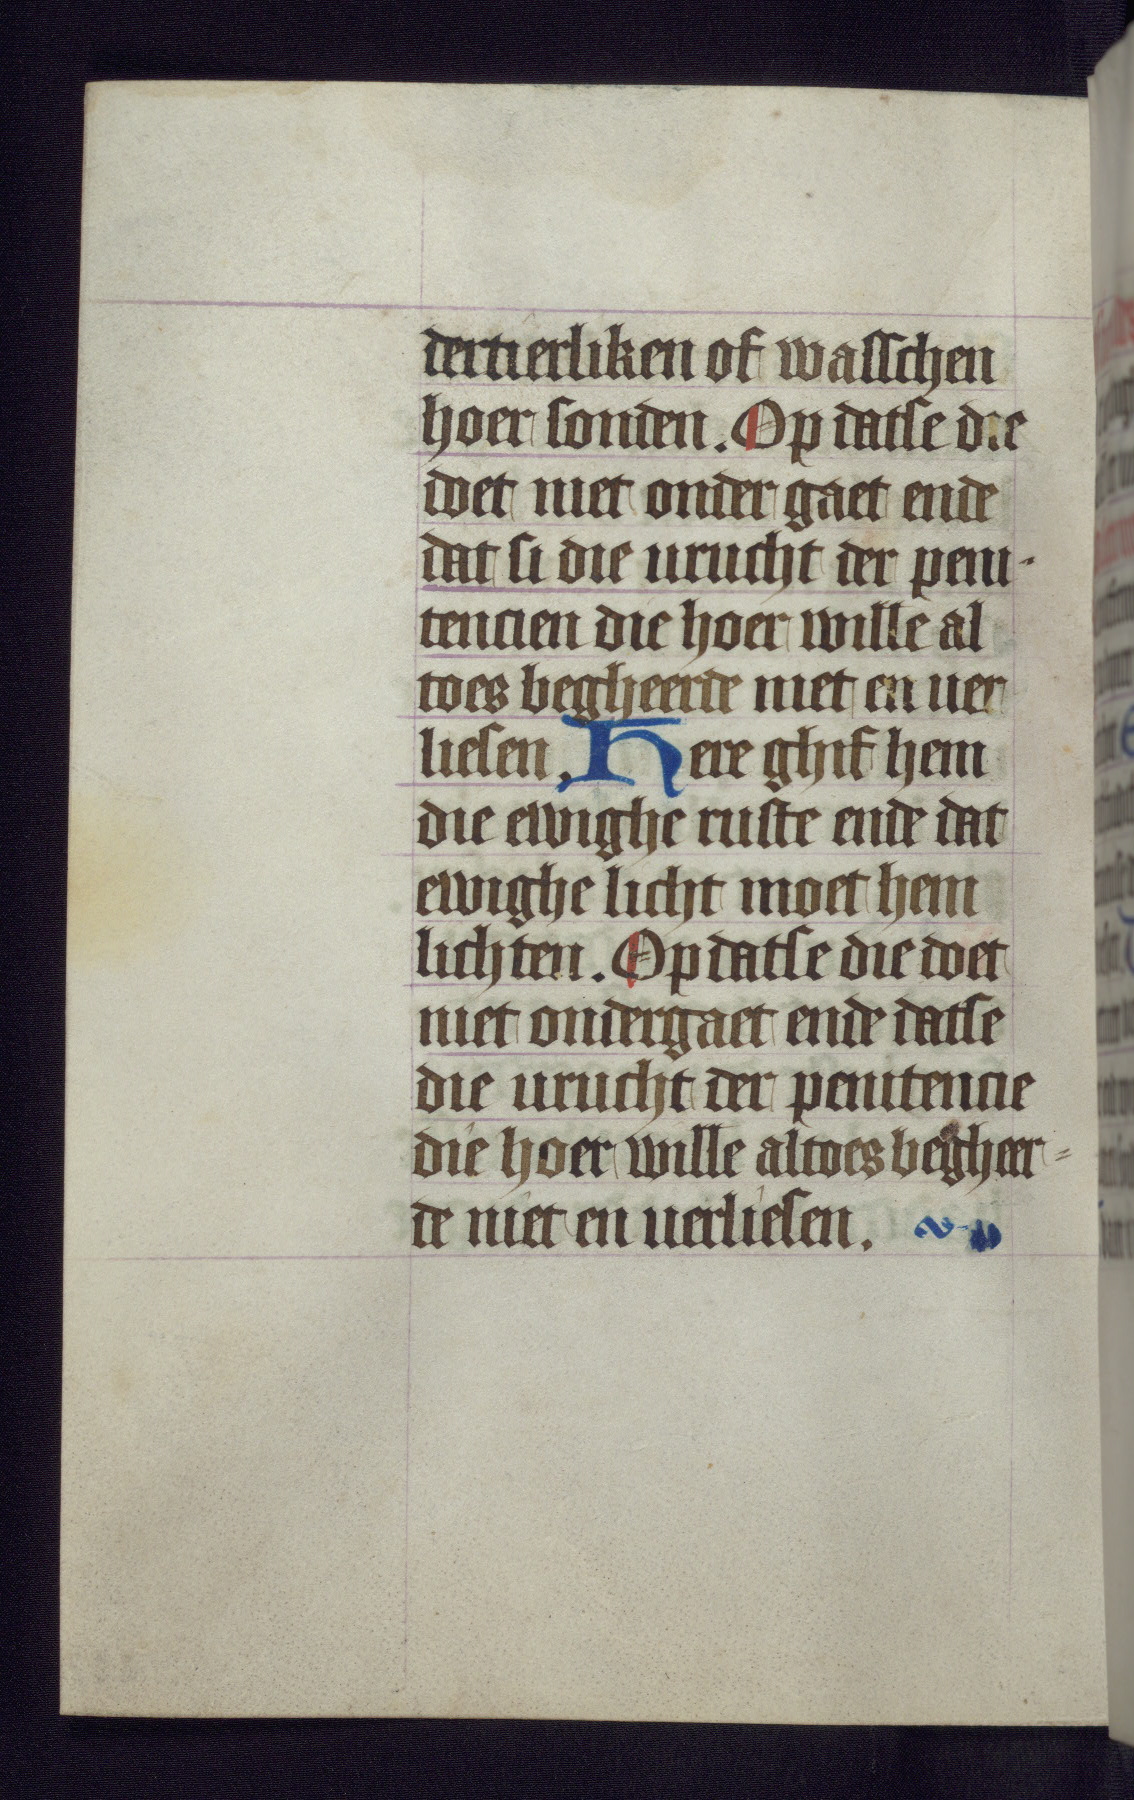 dertierliken of wasschen
hoer sonden. Op datse die
doet niet onder gaet ende
dat si die urucht der peni-
tencien die hoer wille al
toes begheerde niet en uer
liesen. Here ghif hem
die ewighe ruste ende dat
ewighe licht moet hem
lichten. Op datse die doet
niet ondergaet ende datse
die urucht der penitencie
die hoer wille altoes begheer=
de niet en uerliesen.